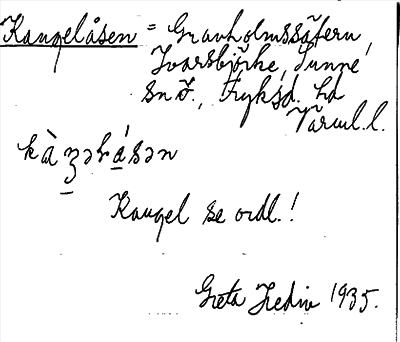 Kangelåsen = Gravholmssätern,
Ivarsbjörke, Sunne
sn Ö., Fryksd. hd
Värml. l.
Kangel se ordl.!
Greta Hedin 1935.